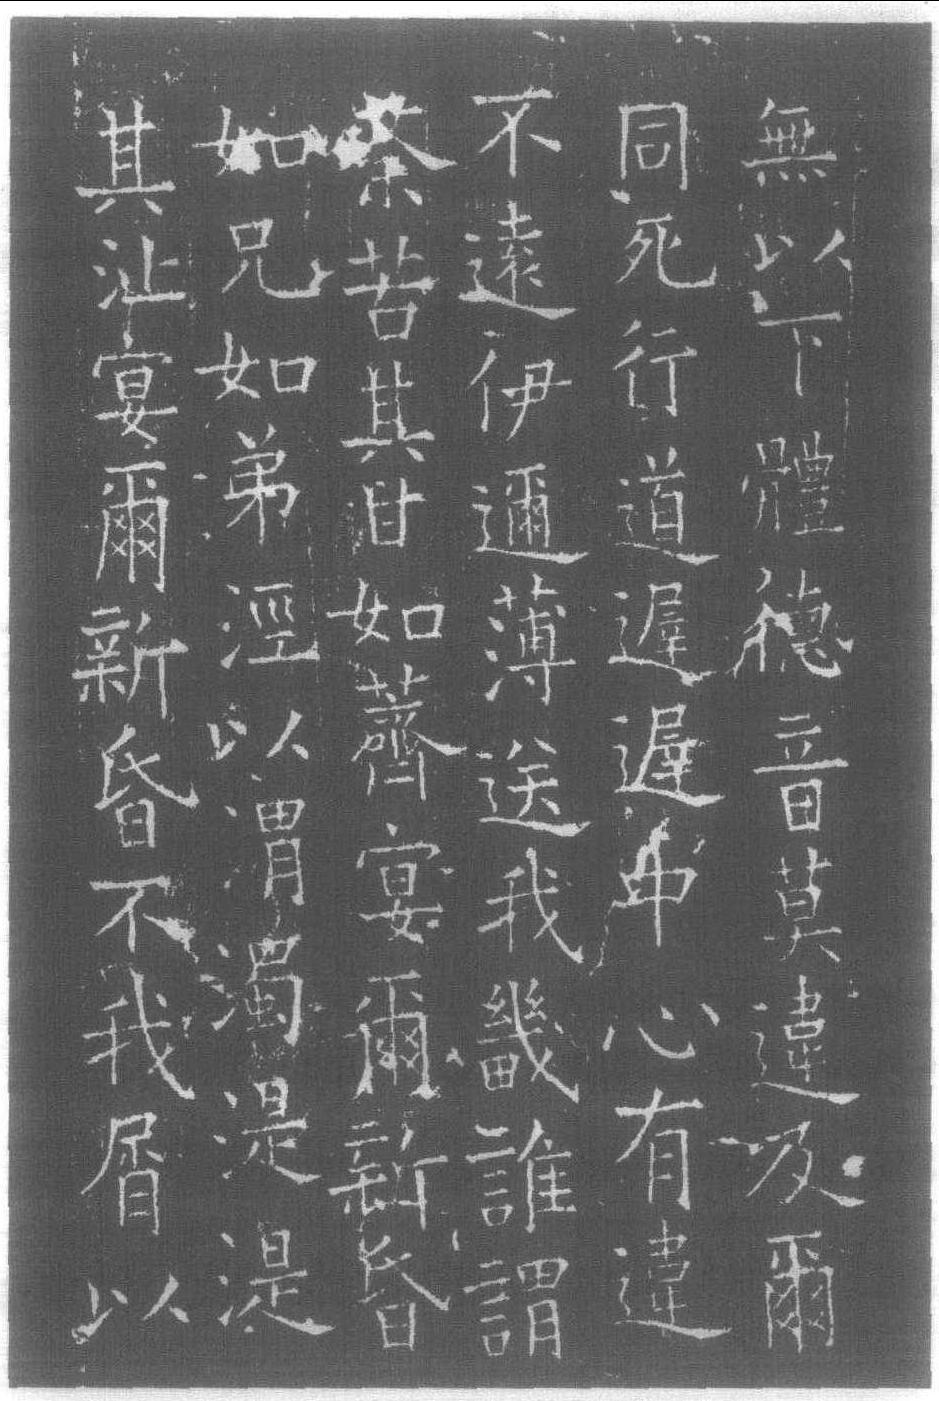 無以下體德音莫違及爾
同死行道遲遲中心有違
不遠伊邇薄送我畿誰謂
荼苦其甘如薺宴爾新昏
如兄如弟涇以渭濁湜湜
其沚宴爾新昏不我屑以